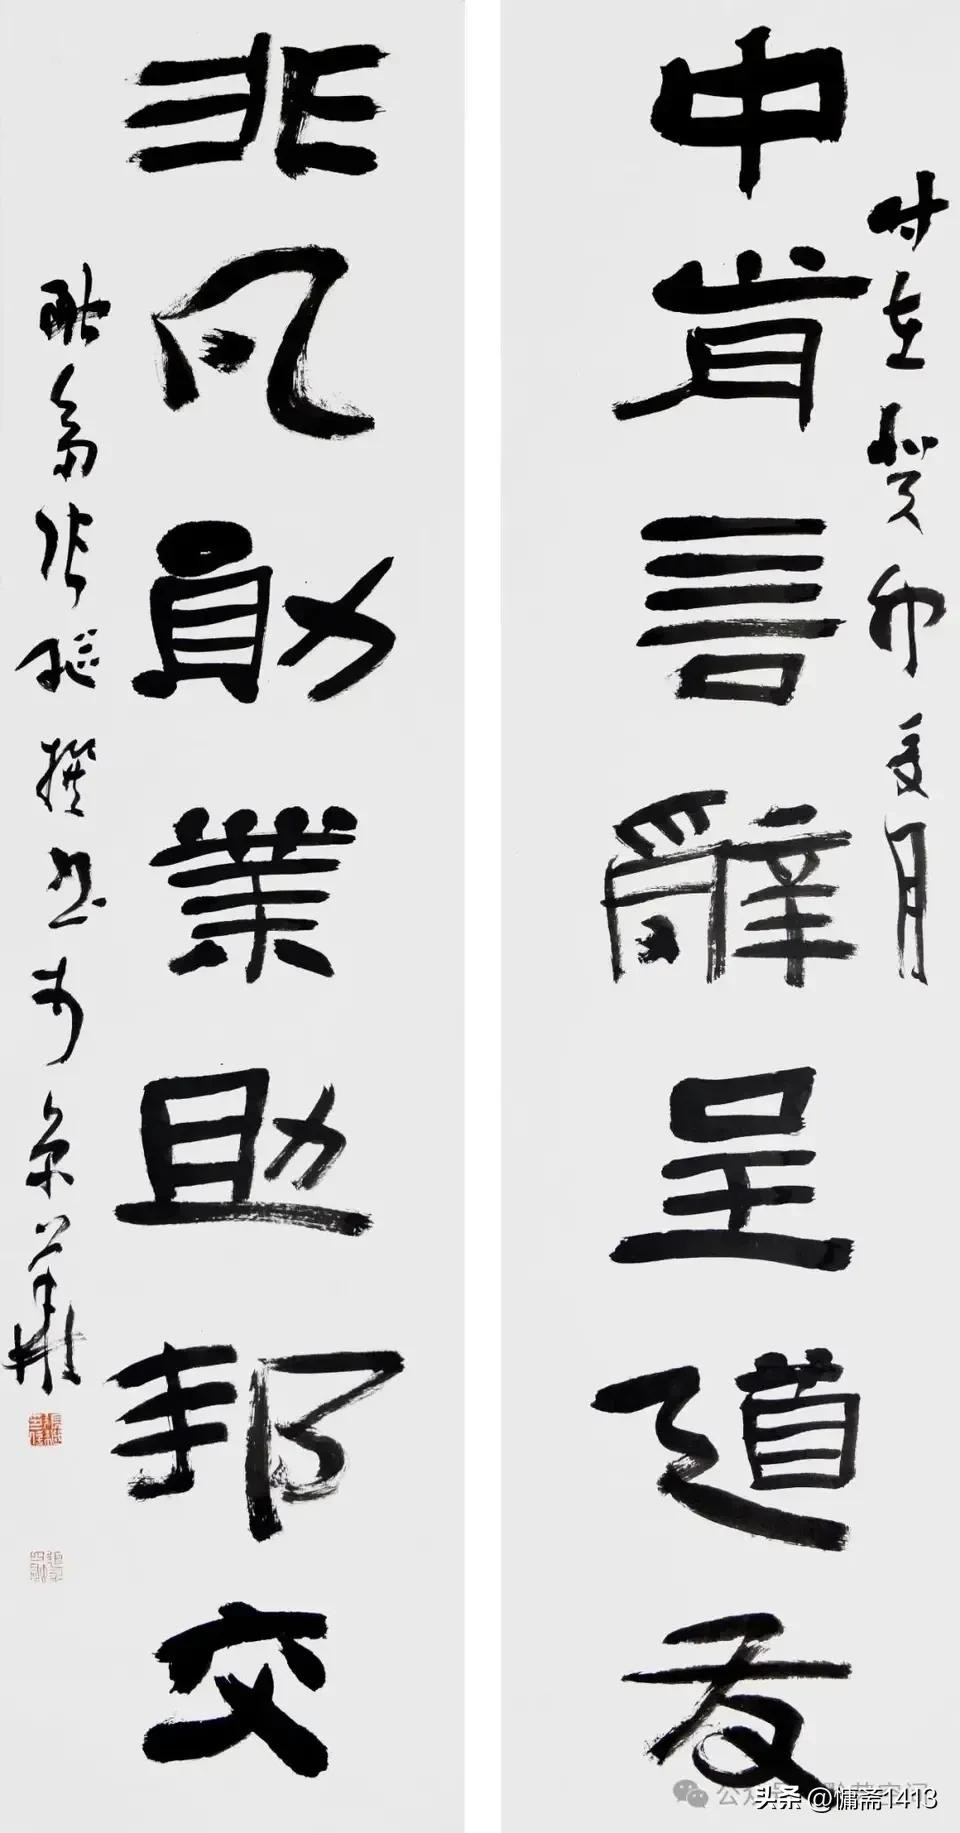 时在癸卯夏月
中肯言辭呈道友
非凡勛業助邦交
翁张撰书于京華
公众号
头条 @慵斋1413